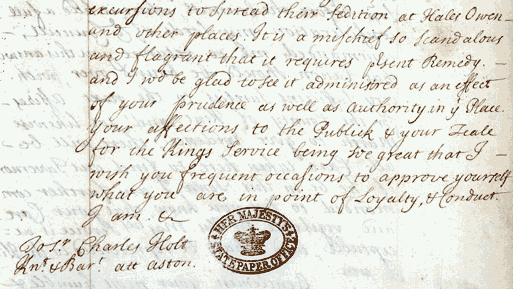 excursions to spread their Sedition at Hales Owen -
and other places. It is a mischief so scandalous
and flagrant that it requires p'sent Remedy. -
and I wo'd be glad to see it administred as an effect
of your prudence as well as Authority in yᵉ Place.
Your affections to the Publick & your Zeale
for the Kings Service being soe great that I -
wish you frequent occasions to approve yourself
what you are in point of Loyalty, & Conduct.
I am. &c
HER MAJESTYS
STATE PAPER OFFICE
To Sʳ Charles Holt
Knᵗ & Barᵗ att Aston.